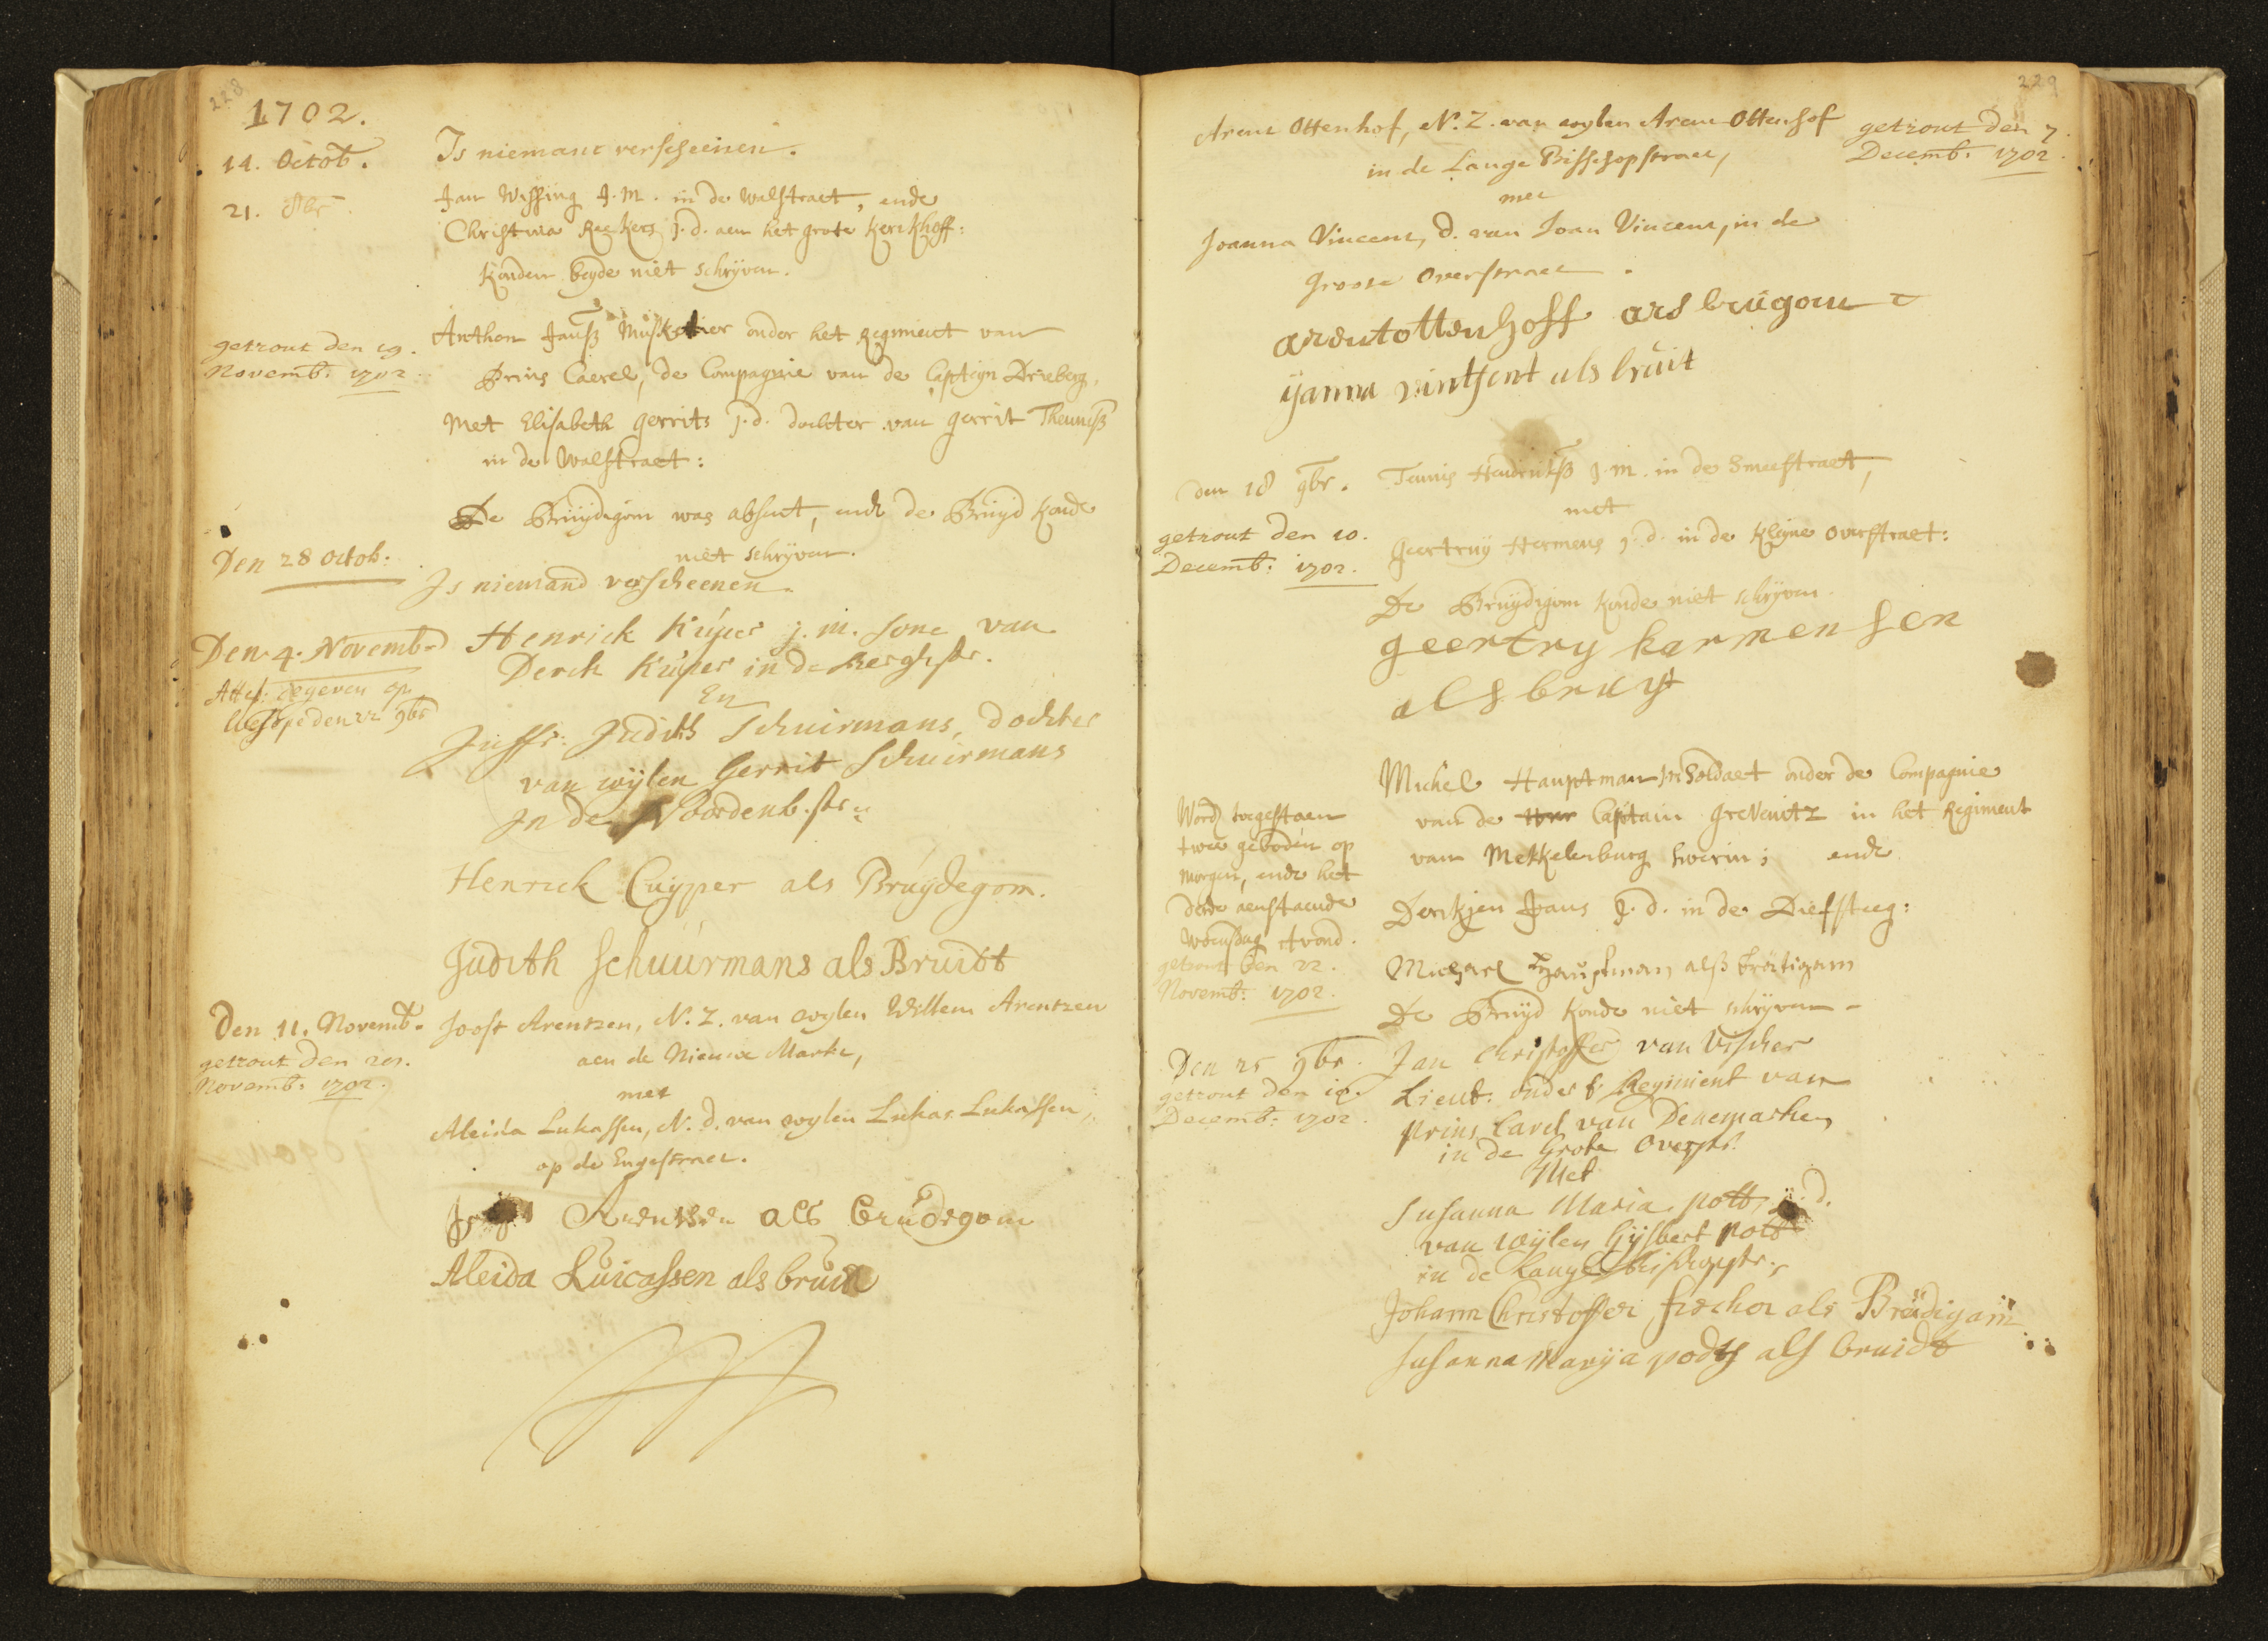 228
1702.
14. Octob.
Is niemant verscheenen.
21. 8br
Jan Wissing J. M. in de Walstraet, ende
Christina Reekers J. d. aen het grote Kerckhoff:
Konden beyde niet schrijven.
getrout den 19.
Novemb: 1702
Anthon Janß Musketier onder het Regiment van
Prins Caerel, de Compagnie van de Capteyn Drieberg,
Met Elisabeth Gerrits J. d. dochter van Gerrit Theunisß
in de Walstraet:
De Bruydegom was absent, ende de Bruyd konde
niet schrijven.
Den 28 octob:
Is niemand verscheenen.
Den. 4. Novemb.
Attest. gegeven op
den 22 9br
Henrick Kuper j. m. sone van
Derck Kuper in de Bergh str.
En
Juffr: Judith Schuirmans, dochter
van wijlen Gerrit Schuirmans
In de Noordenb. str.
Henrick Cuyper als Bruydegom.
Judith Schuurmans als Bruidt
Den 11. Novemb.
getrout den
Novemb: 1702.
Joost Arentzen, N. Z. van wylen Willem Arentzen
aen de Nieuwe Markt,
met
Aleida Lukassen, N. d. van wylen Lukas Lukassen,
op de Engestraet.
Arentsen als Brudegom
Aleida Luicassen als bruit
229
Arent Ottenhof, N. Z. van wylen Arent Ottenhof
in de Lange Bisschopstraet,
getrout den 7.
Decemb: 1702.
met
Joanna Vincent, d. van Joan Vincent, in de
Groote Overstraet.
arentottenhoff ars brugom
ijanna vintsent als bruit
den 18 9br.
getrout den 10.
Decemb: 1702.
Teunis Hendriksß J. m. in de Smeestraet,
met
Geertruy Hermens J. d. in de Kleyne Overstraet:
De Bruydegom konde niet schrijven.
geertry harmensen
als bruyt
Word toegestaen
twee geboden op
morgen, ende het
derde aenstaende
Woensdag Avond.
getrout den 22.
Novemb: 1702.
Michel Hauptman Soldaet onder de Compagnie
van de Captain Grevenitz in het Regiment
van Mekkelenburg Swerin; ende
Derckjen Jans J. d. in de Diefsteeg:
Michael Hauptman alß Brätigam
De Bruyd konde niet schrijven
Den 25 9br.
getrout den
Decemb: 1702.
Jan Christoffer van Vischer
Lieut: onder t Regiment van
prins Carel van Denemarken
in de Grote Overstr.
Met
Susanna Maria Pott, d.
van wijlen Gijsbert Pott
in de Lange Bisschopstr.
Johann Christoffer fischer als Brüdigam
Susanna Marija podts als bruidt